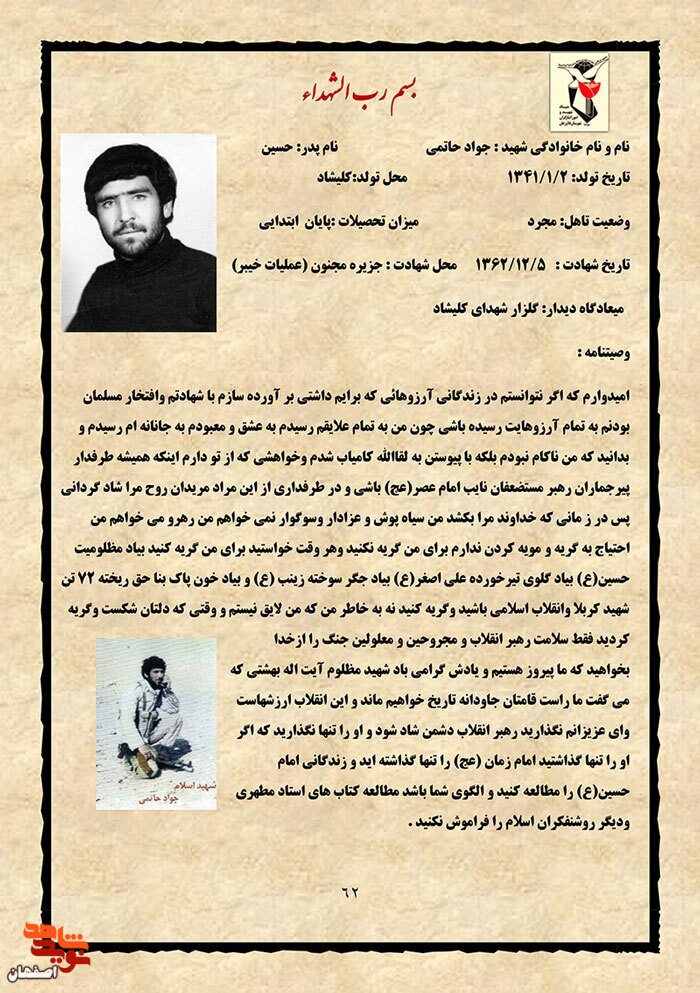 بسم رب الشهداء
نام و نام خانوادگی شهید : جواد حاتمی نام پدر: حسین
تاریخ تولد: ۱۳۴۱/۱/۲ محل تولد:کلیشاد
وضعیت تاهل: مجرد میزان تحصیلات :پایان ابتدایی
تاریخ شهادت : ۱۳۶۲/۱۲/۵ محل شهادت : جزیره مجنون (عملیات خیبر)
میعادگاه دیدار: گلزار شهدای کلیشاد
وصیتنامه :
امیدوارم که اگر نتوانستم در زندگانی آرزوهائی که برایم داشتی بر آورده سازم با شهادتم وافتخار مسلمان
بودنم به تمام آرزوهایت رسیده باشی چون من به تمام علایقم رسیدم به عشق و معبودم به جانانه ام رسیدم و
بدانید که من ناکام نبودم بلکه با پیوستن به لقاالله کامیاب شدم وخواهشی که از تو دارم اینکه همیشه طرفدار
پیرجماران رهبر مستضعفان نایب امام عصر(عج) باشی و در طرفداری از این مراد مریدان روح مرا شاد گردانی
پس در ز مانی که خداوند مرا بکشد من سیاه پوش و عزادار وسوگوار نمی خواهم من رهرو می خواهم من
احتیاج به گریه و مویه کردن ندارم برای من گریه نکنید وهر وقت خواستید برای من گریه کنید بیاد مظلومیت
حسین(ع) بیاد گلوی تیرخورده علی اصغر(ع) بیاد جگر سوخته زینب (ع) و بیاد خون پاک بنا حق ریخته ۷۲ تن
شهید کربلا وانقلاب اسلامی باشید وگریه کنید نه به خاطر من که من لایق نیستم و وقتی که دلتان شکست وگریه
کردید فقط سلامت رهبر انقلاب و مجروحین و معلولین جنگ را ازخدا
بخواهید که ما پیروز هستیم و یادش گرامی باد شهید مظلوم آیت اله بهشتی که
می گفت ما راست قامتان جاودانه تاریخ خواهیم ماند و این انقلاب ارزشهاست
وای عزیزانم نگذارید رهبر انقلاب دشمن شاد شود و او را تنها نگذارید که اگر
او را تنها گذاشتید امام زمان (عج) را تنها گذاشته اید و زندگانی امام
حسین(ع) را مطالعه کنید و الگوی شما باشد مطالعه کتاب های استاد مطهری
ودیگر روشنفکران اسلام را فراموش نکنید .
شهید اسلام
جواد حاتمی
۶۲
نوید شاهد
اصفهان